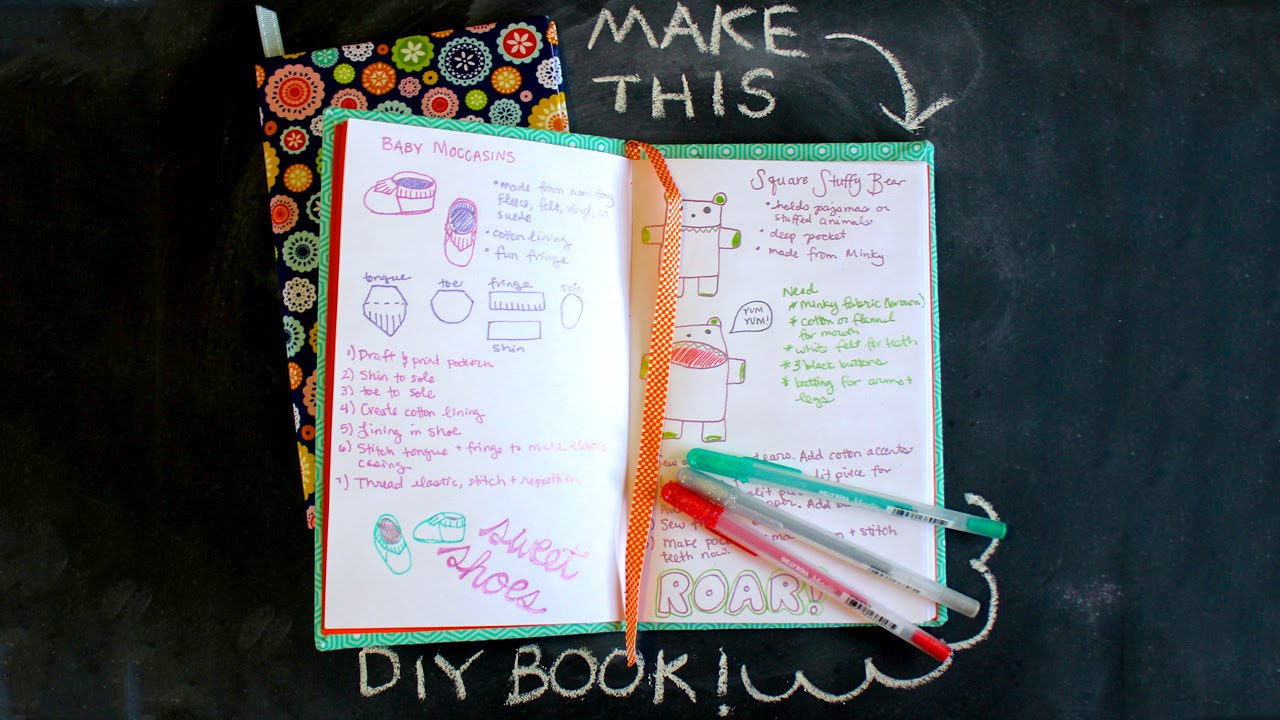 MAKE
THIS
BABY MOCCASINS
• made from non fray
fleece, felt, vinyl, or
suede
• cotton lining
• fun fringe
tongue
toe
fringe
sole
skin
1) Draft & print pattern
2) Skin to sole
3) toe to sole
4) Create cotton lining
5) Lining in shoe
6) Stitch tongue + fringe to make elastic
casing
7) Thread elastic, stitch + reposition
sweet
shoes
Square Stuffy Bear
• holds pajamas or
stuffed animals
• deep pocket
• made from Minky
YUM
YUM!
Need
* minky fabric (brown)
* cotton or flannel
for mouth
* white felt for teeth
* 3 black buttons
* batting for arms +
legs
ears. Add cotton accents
piece for
Add
Sew
Make + stitch
teeth now.
ROAR!
DIY BOOK!